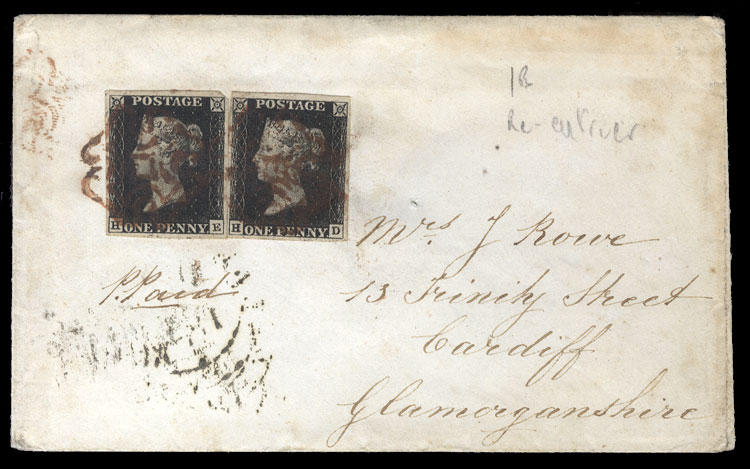 POSTAGE
ONE PENNY
H E
POSTAGE
ONE PENNY
H D
1B
Re-entries
P.Paid
Mrs. J Rowe
13 Trinity Street
Cardiff
Glamorganshire